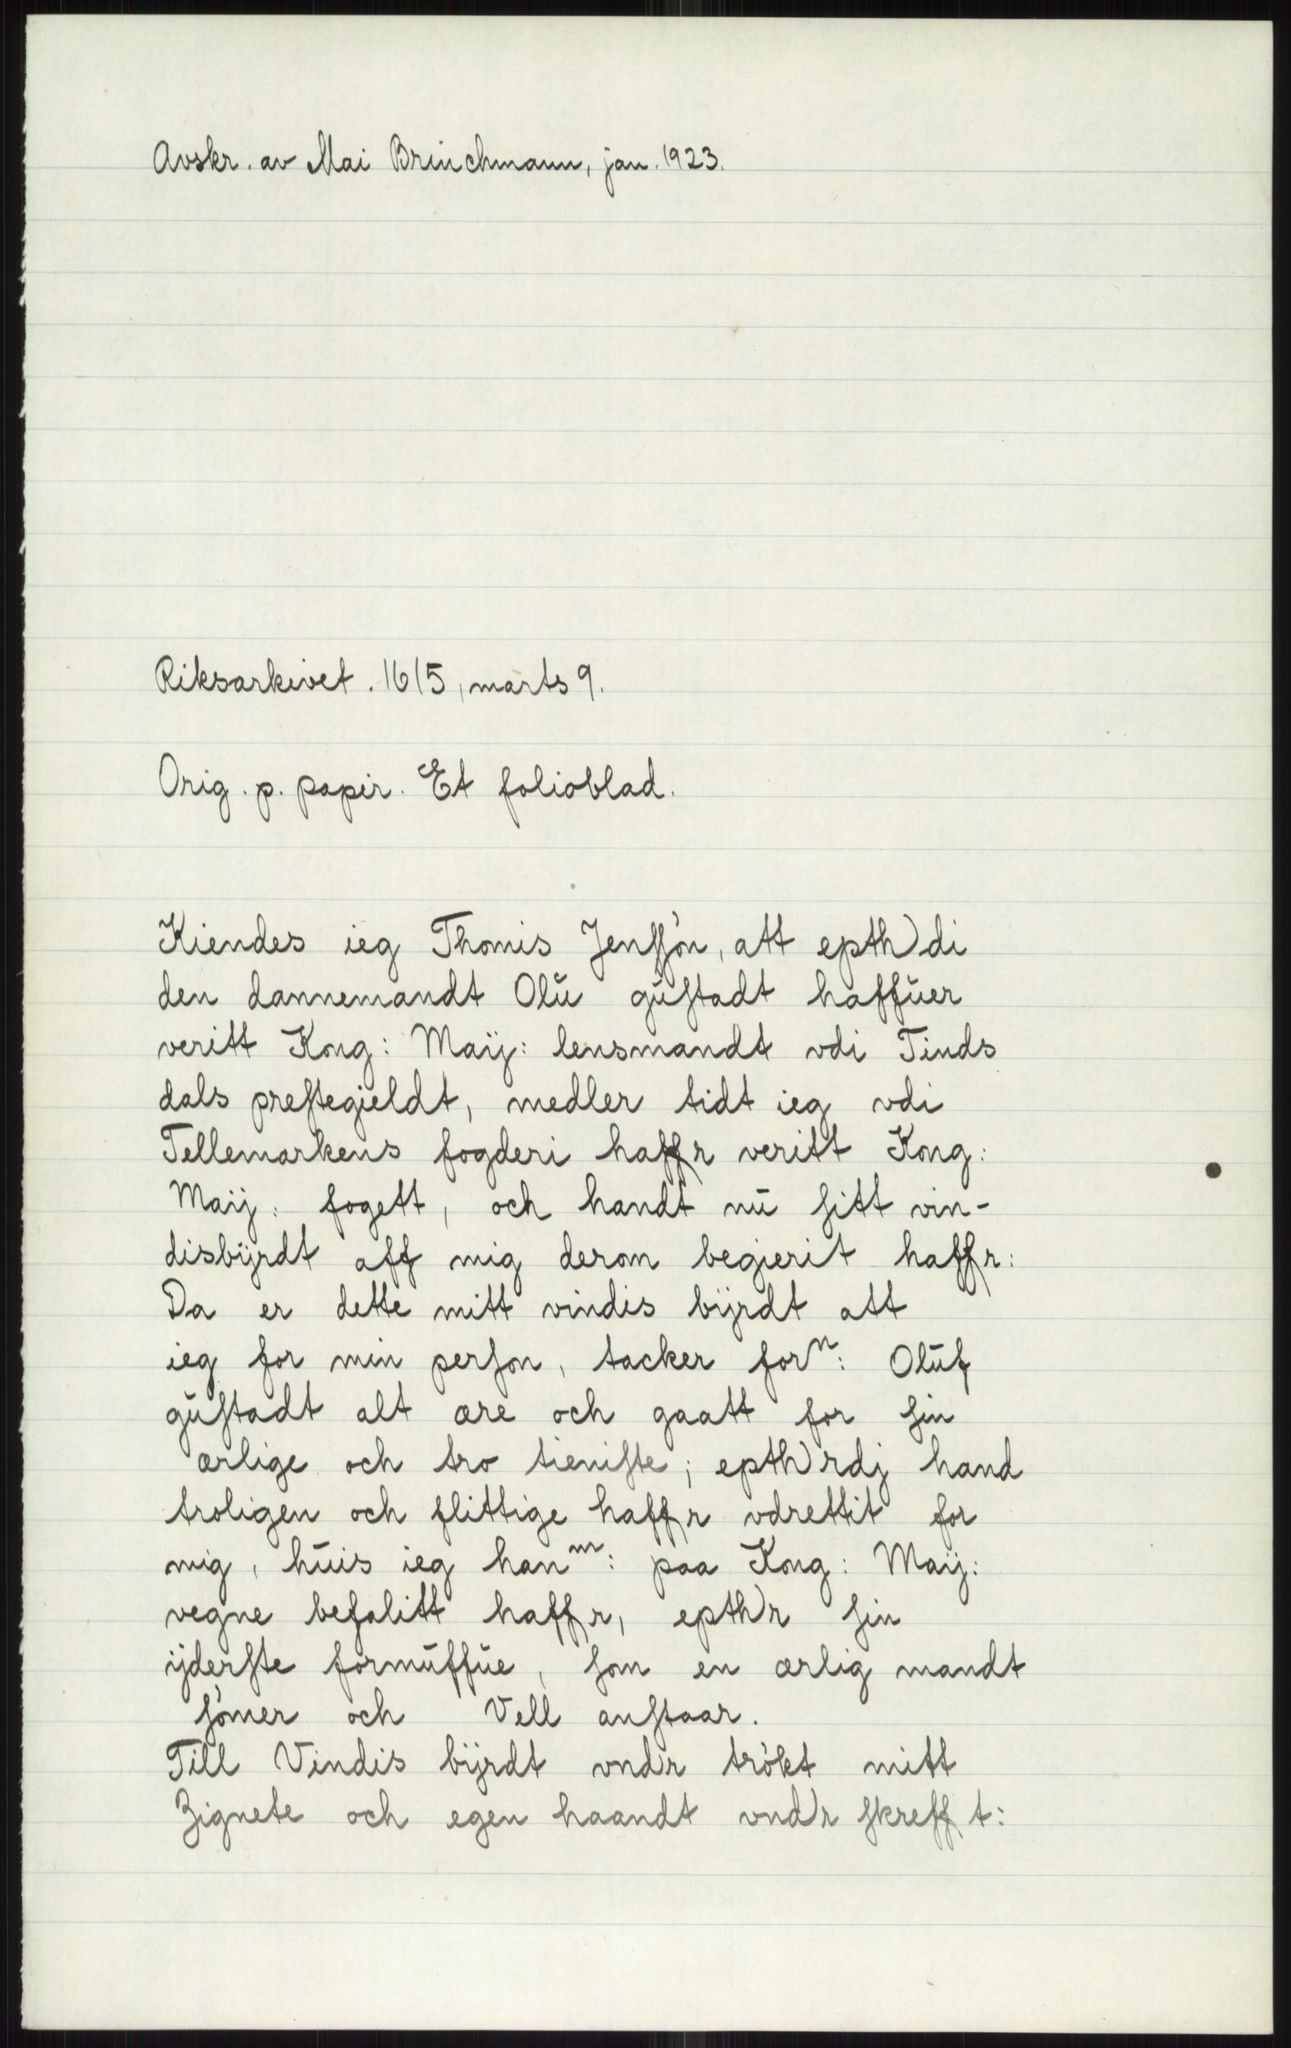 Avskr. av Mai Brinchmann, jan. 1923.
Riksarkivet. 1615, marts 9.
Orig. p. papir. Et folioblad.
Kiendes ieg Thomis Jenſſøn, att epth)di
den dannemandt Olŭ gŭſtadt haffŭer
veritt Kong: Maÿ: lensmandt vdi Tinds
dals preſtegieldt, medler tidt ieg vdi
Tellemarkens fogderi haffr veritt Kong:
Maÿ: fogett, och handt nŭ ſitt vin-
disbÿrdt aff mig derom begierit haffr:
Da er dette mitt vindis bÿrdt att
ieg for min perſon, tacker forⁿ: Olŭf
gŭſtadt alt ære och gaatt for ſin
ærlige och tro tieniſte; epth)rdj hand
troligen och flittige haffr vdrettit for
mig, hŭis ieg hanᵐ: paa Kong: Maÿ:
vegne befalitt haffr, epth)r ſin
ÿderſte formŭffŭe, ſom en ærlig mandt
ſømer och Vell anſtaar.
Till Vindis bÿrdt vnd)r trøkt mitt
Zignete och egen haandt vnd)r ſkrefft: